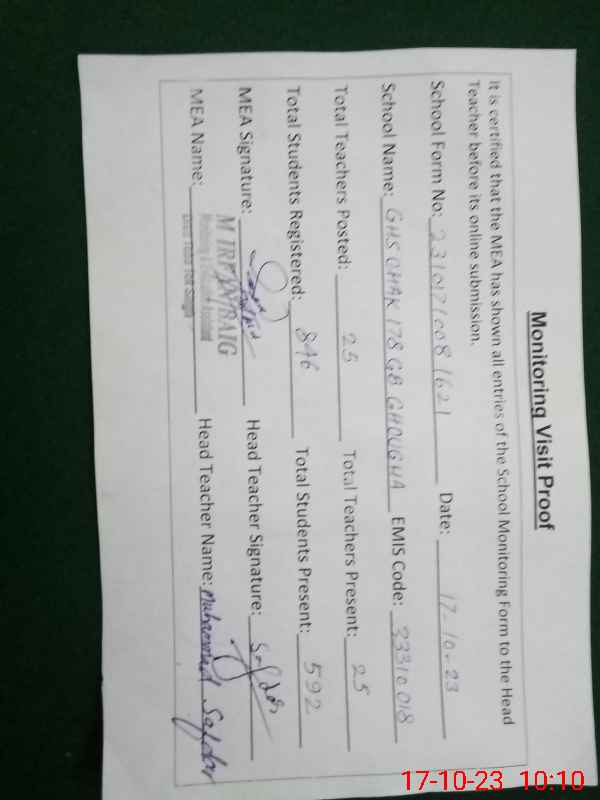 Monitoring Visit Proof
It is certified that the MEA has shown all entries of the School Monitoring Form to the Head
Teacher before its online submission.
School Form No: 2310171008 1621 Date: 17-10-23
School Name: GHS CHAK 178 GB GHOUGHA EMIS Code: 33310018
Total Teachers Posted: 25 Total Teachers Present: 25
Total Students Registered: 846 Total Students Present: 592
MEA Signature: Head Teacher Signature: Safdar
M IRFAN BAIG
MEA Name: Head Teacher Name: Muhammad Safdar
17-10-23 10:10